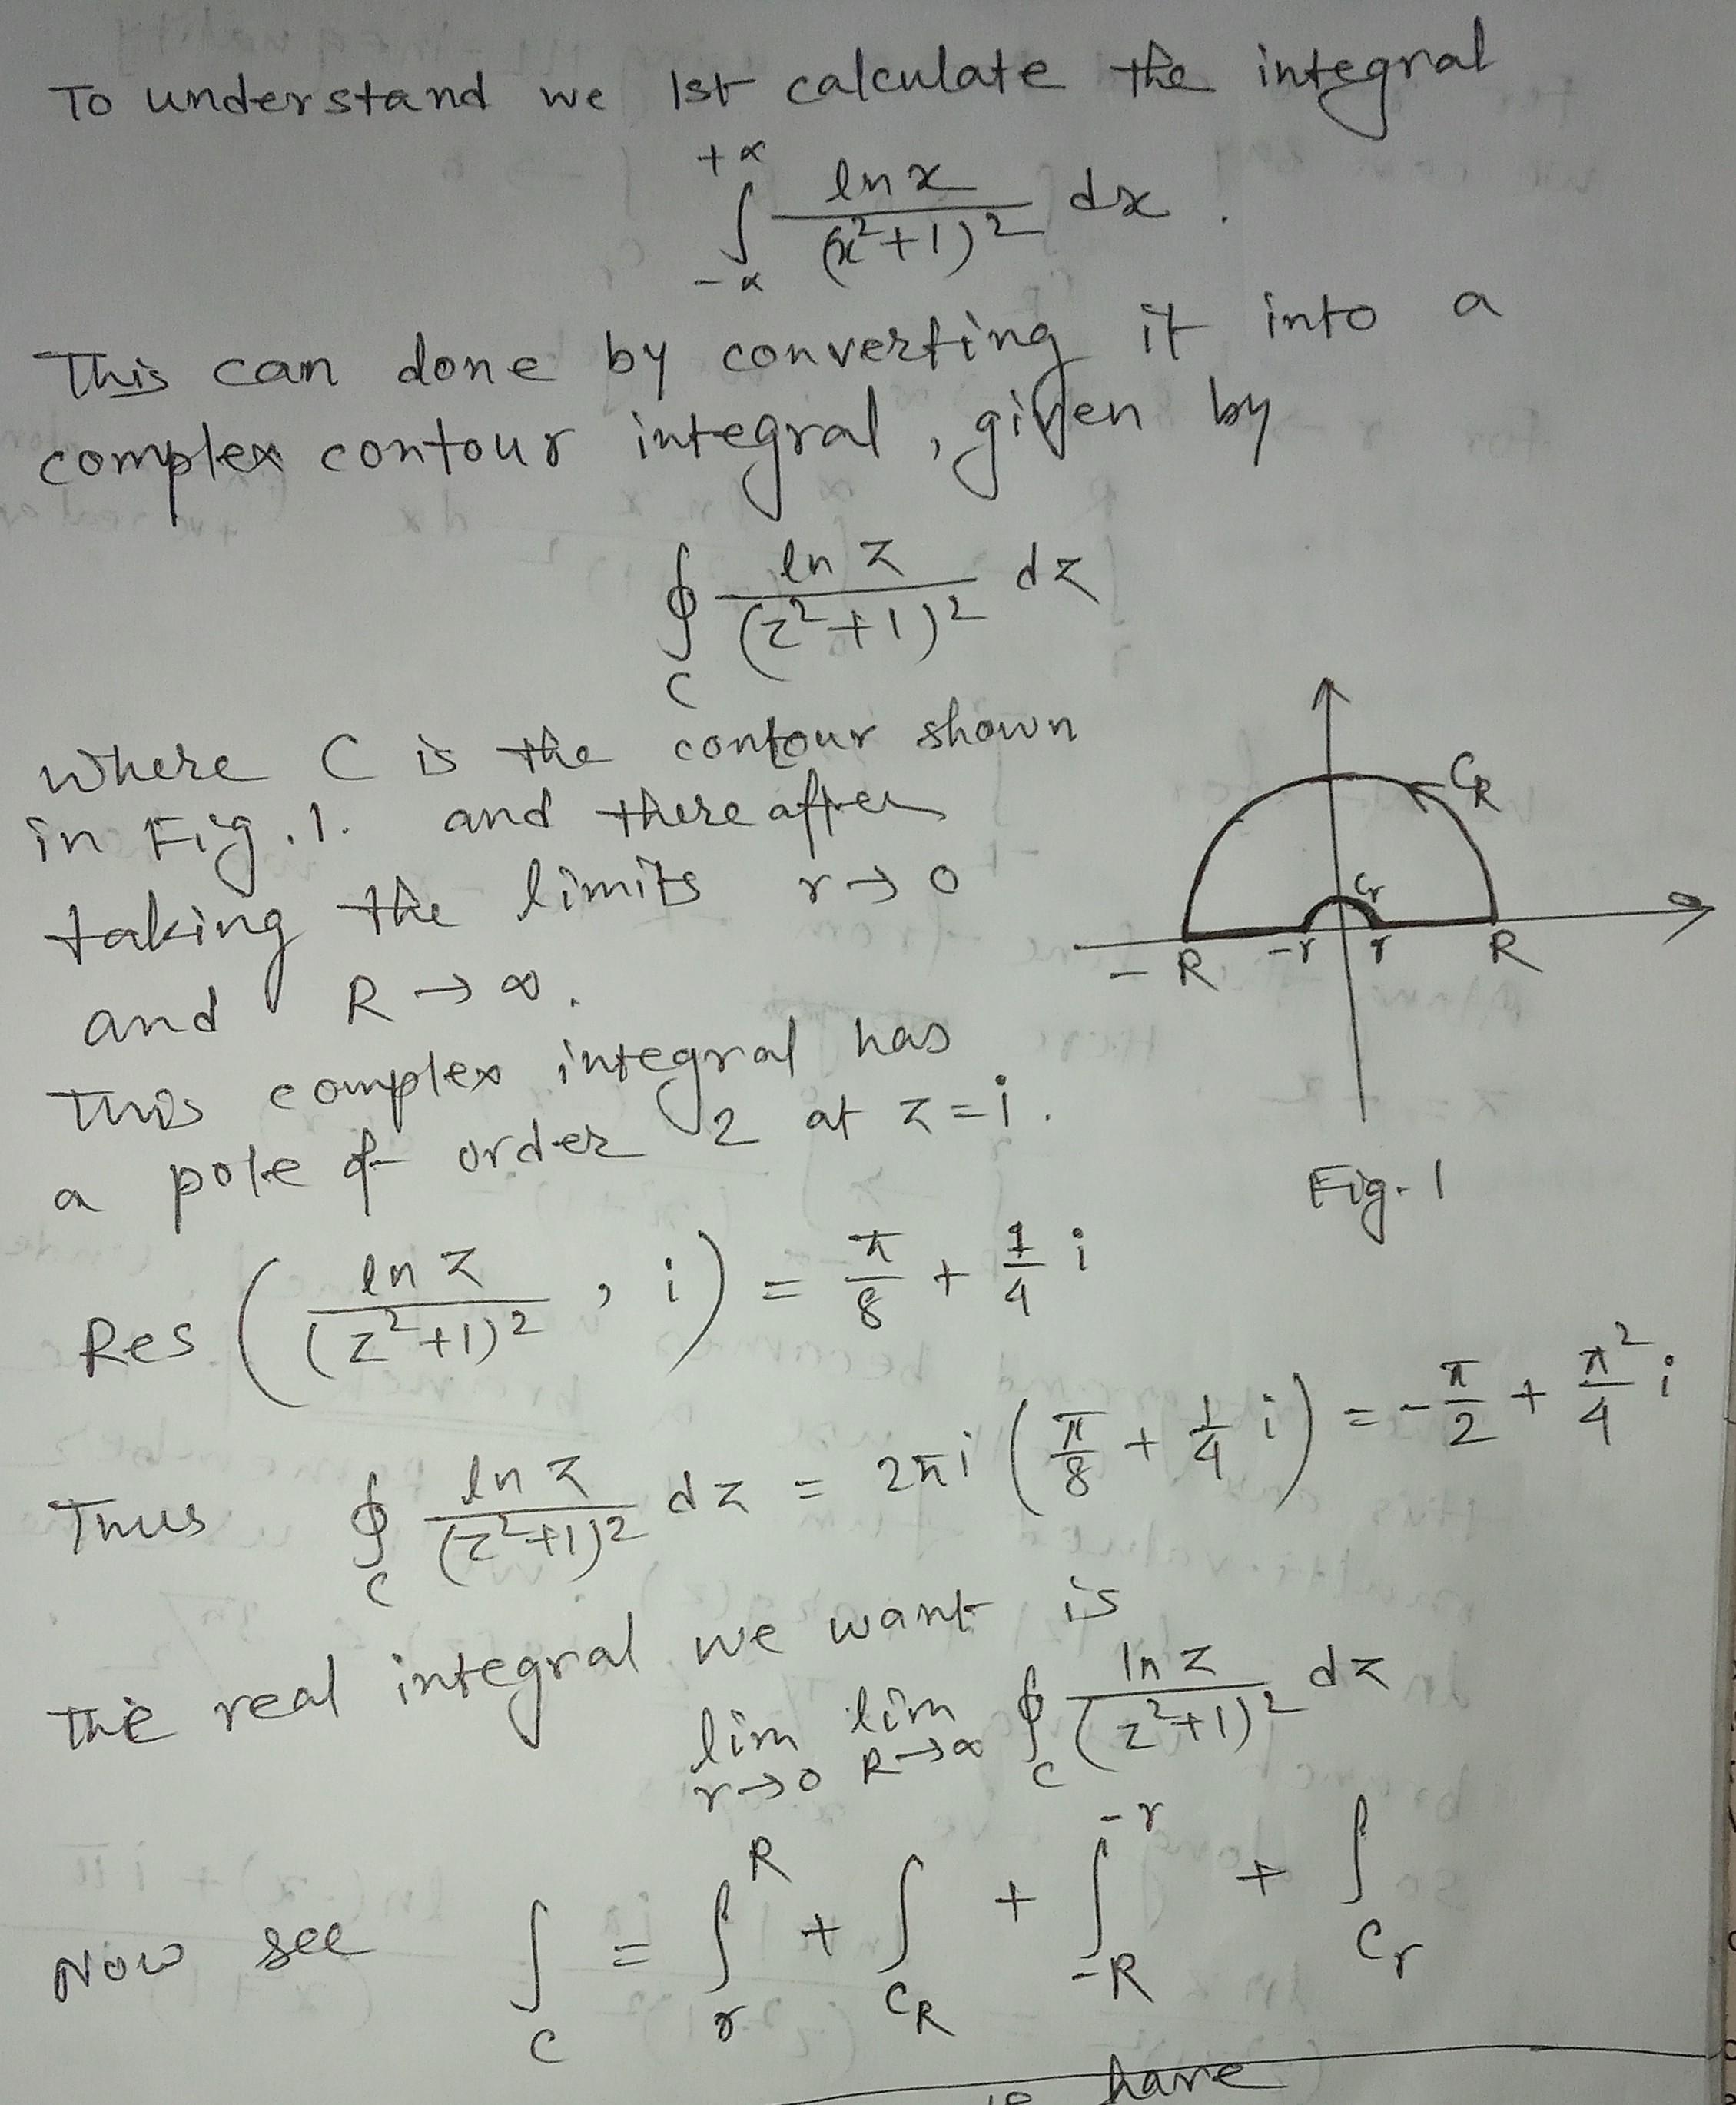 To understand we 1st calculate the integral
∫_{-∝}^{+∝} ln x / (x²+1)² dx .
This can done by converting it into a
complex contour integral, given by
∮_C ln z / (z²+1)² dz
where C is the contour shown
in Fig.1. and thereafter
taking the limits r → 0
and R → ∞.
C_R
C_r
-R -r r R
Fig. 1
This complex integral has
a pole of order 2 at z = i.
Res ( ln z / (z²+1)² , i ) = π/8 + 1/4 i
Thus ∮_C ln z / (z²+1)² dz = 2πi ( π/8 + 1/4 i ) = -π/2 + π²/4 i
The real integral we want is
lim_{r→0} lim_{R→∝} ∮_C ln z / (z²+1)² dz
Now see ∫_C = ∫_r^R + ∫_{C_R} + ∫_{-R}^{-r} + ∫_{C_r}
have